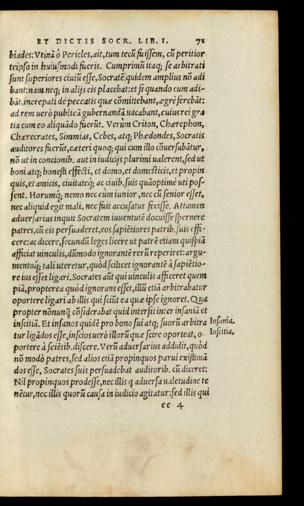 ET DICTIS SOCR. LIB. I. 71
biades: Vtinā ô Pericles, ait, tum tecū fuissem, cū peritior
teipso in huiusmodi fueris. Cumprimū itaq; se arbitrati
sunt superiores ciuiū esse, Socratē quidem amplius nō adi
bant: nam neq; in alijs eis placebat: et si quando eum adi-
bāt, increpati de peccatis quæ cōmittebant, ægrè ferebāt:
ad rem uerò publicā gubernandā uacabant, cuius rei gra
tia cum eo aliquādo fuerūt. Verùm Criton, Chærephon,
Chærecrates, Simmias, Cebes, atq; Phædondes, Socratis
auditores fuerūt, cæteri quoq; qui cum illo cōuersabātur,
nō ut in concionib. aut in iudicijs plurimi ualerent, sed ut
boni atq; honesti effecti, et domo, et domesticis, et propin
quis, et amicis, ciuitateq; ac ciuib. suis quàoptimè uti pos-
sent. Horumq; nemo nec cùm iunior, nec cū senior esset,
nec aliquid egit mali, nec fuit accusatus fecisse. Attamen
aduersarius inquit Socratem iuuentutē docuisse spernere
patres, cū eis persuaderet, eos sapiētiores patrib. suis effi-
cere: ac dicere, secundū leges licere ut patrē etiam quispiā
afficiat uinculis, dūmodo ignorantē rerū reperiret: argu-
mentoq; tali uteretur, quòd scilicet ignorantē à sapiētio-
re ius esset ligari. Socrates aūt qui uinculis afficeret quem
piā, propterea quòd ignorans esset, illū etiā arbitrabatur
oportere ligari ab illis qui sciūt ea quæ ipse ignoret. Qua
propter nōnunq̄ cōsiderabat quid intersit inter insaniā et
inscitiā. Et insanos quidē pro bono sui atq; suorū arbitra
Insania.
tur ligādos esse, inscios uerò illorū quæ scire oporteat, o-
Inscitia.
portere à sciētib. discere. Verū aduersarius addidit, quòd
nō modò patres, sed alios etiā propinquos parui existimā
dos esse, Socrates suis persuadebat auditorib. cū diceret:
Nil propinquos prodesse, nec illis q̄ aduersa ualetudine te
nētur, nec illis quorū causa in iudicio agitatur: sed illis qui
cc 4